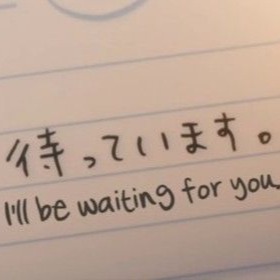 待っています。
I'll be waiting for you.